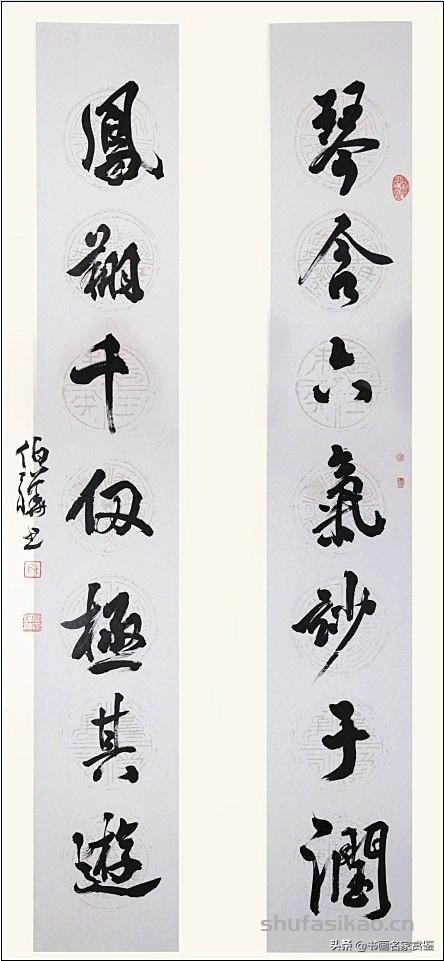 琴含六氣妙于潤
鳳翔千仞極其遊
伯
书
shufasikao.cn
头条 @书画名家赏鉴